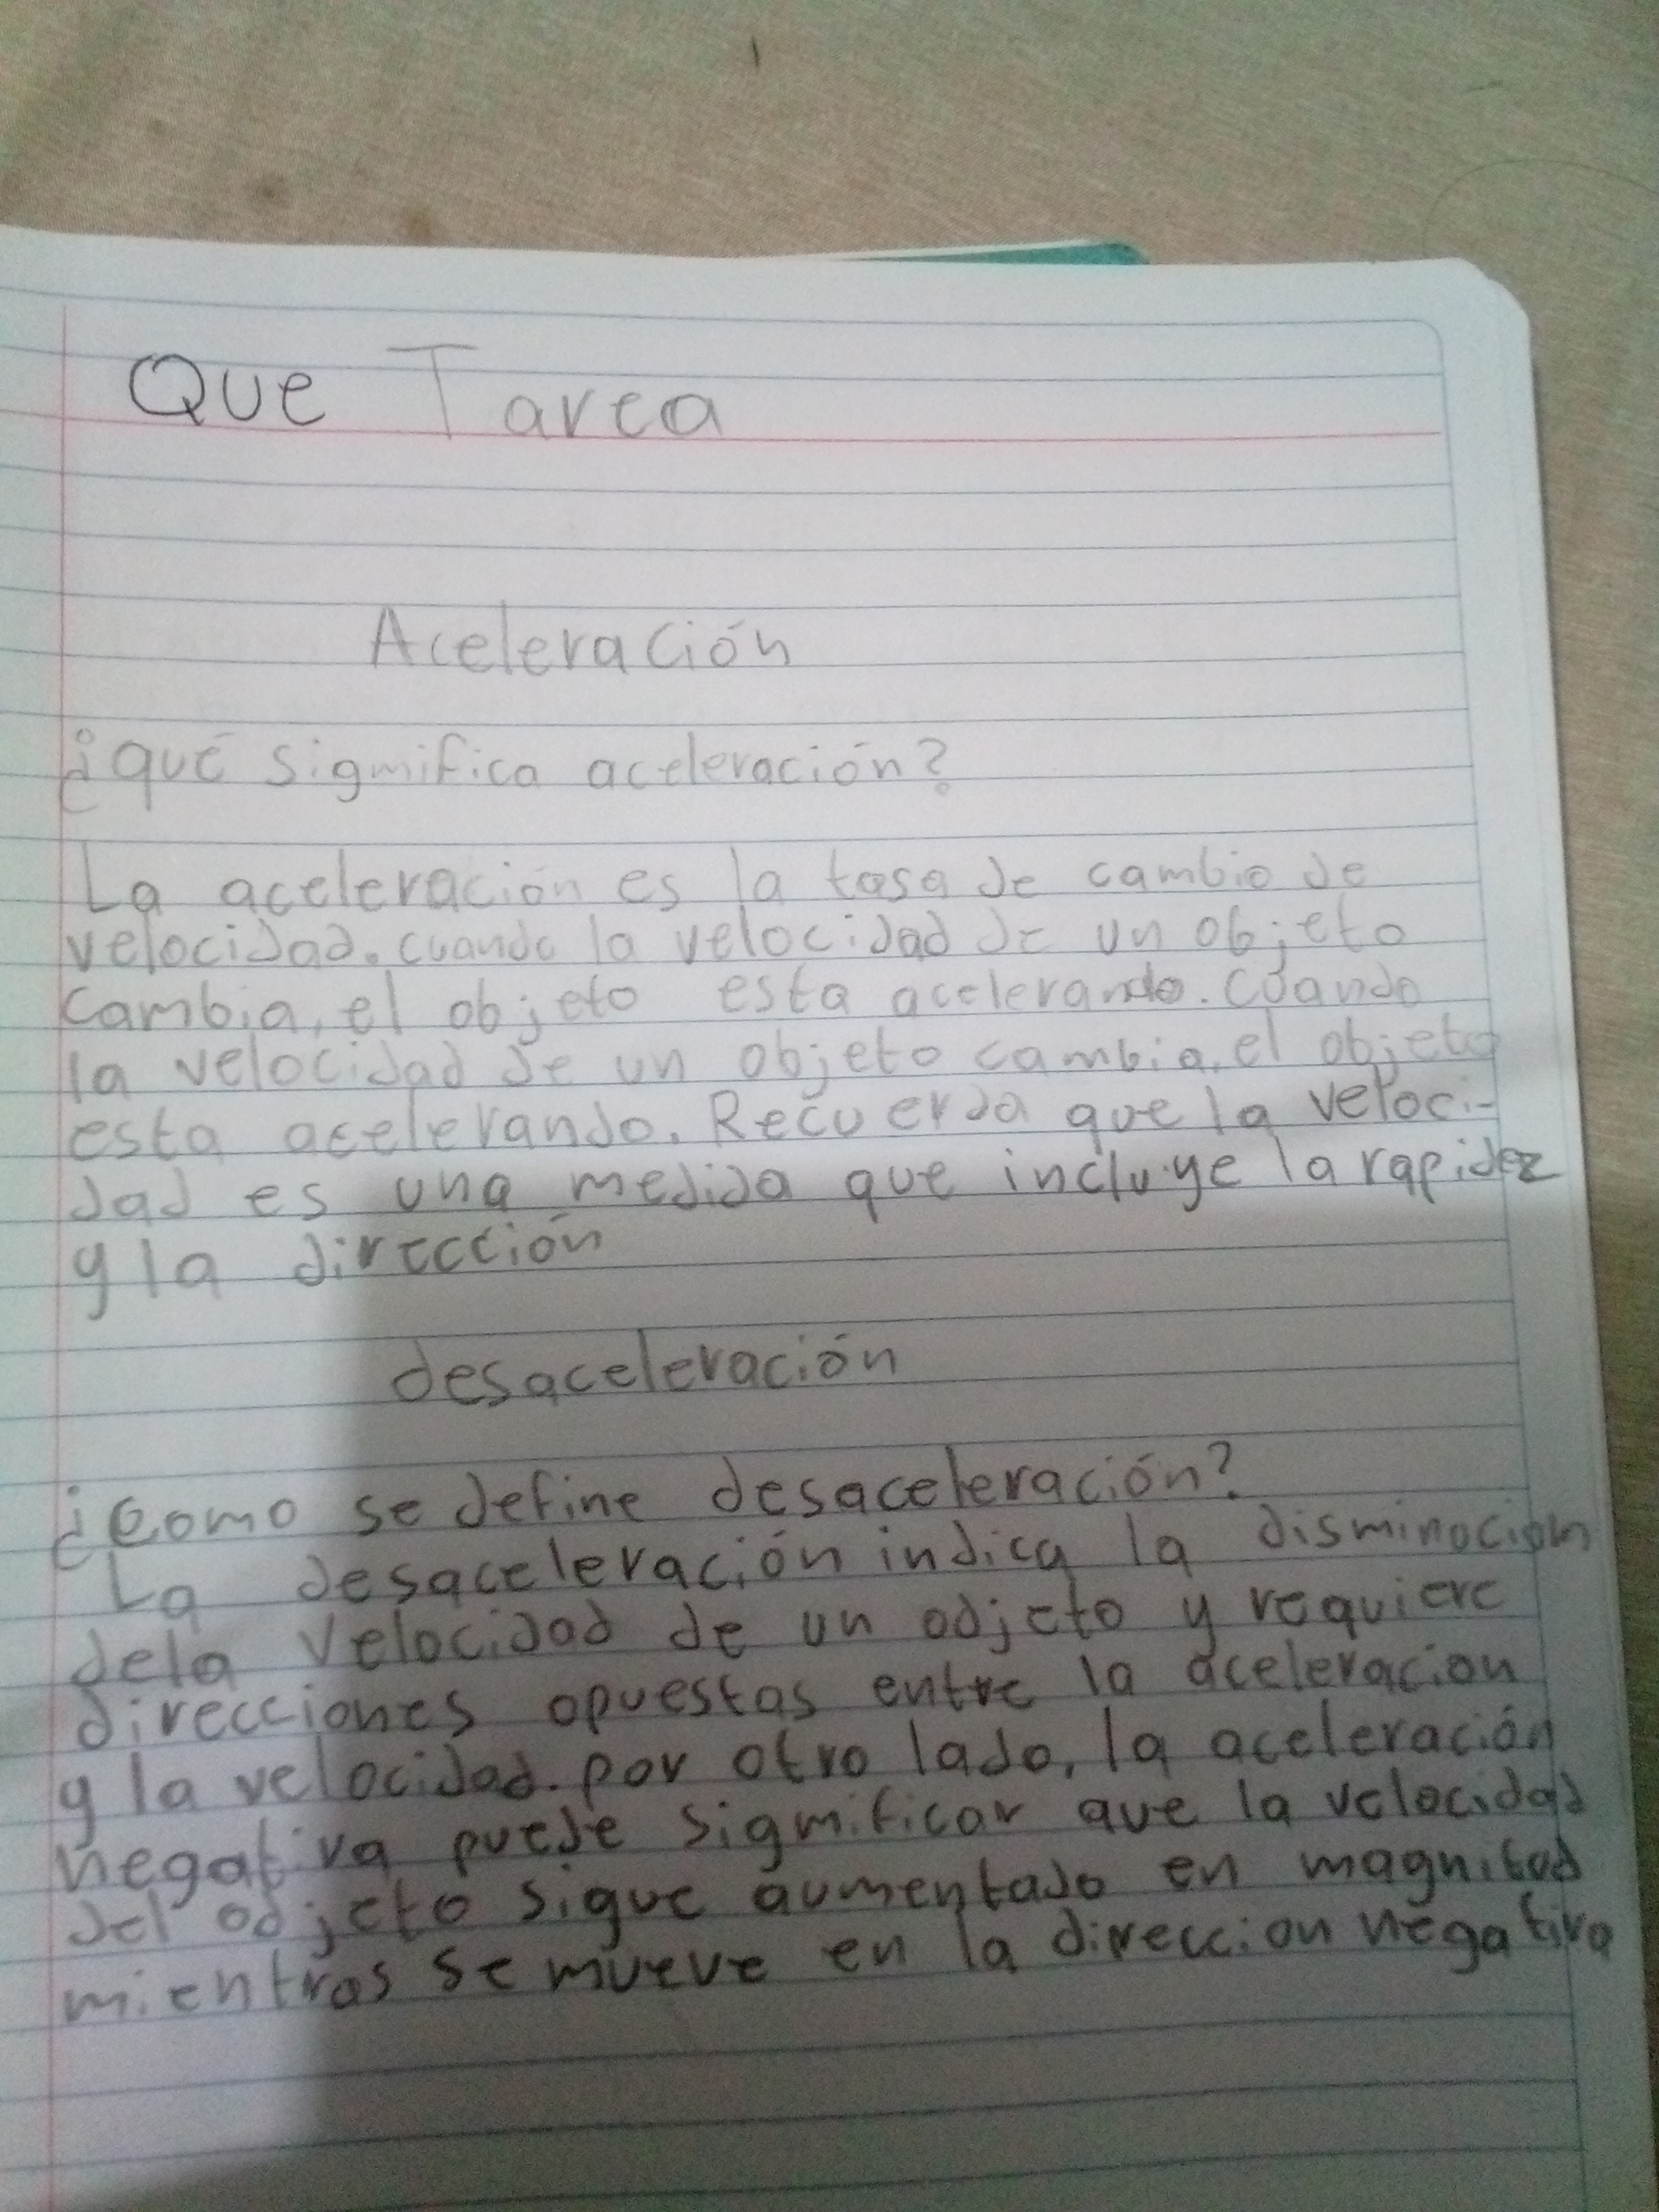 Que Tarea
Aceleración
¿qué sigmifica aceleración?
La aceleración es la tasa de cambio de
velocidad. cuando la velocidad de un objeto
cambia, el objeto esta acelerando. Cuando
la velocidad de un objeto cambia, el objeto
esta acelerando. Recuerda que la veloci-
dad es una medida que incluye la rapidez
y la dirección
desaceleración
¿Como se define desaceleración?
La desaceleración indica la disminocion
dela Velocidad de un odjeto y requiere
direcciones opuestas entre la aceleracion
y la velocidad. por otro lado, la aceleración
negativa puede sigmificar que la velocidad
del odjeto sigue aumentado en magnitud
mientras se mueve en la direccion negativa